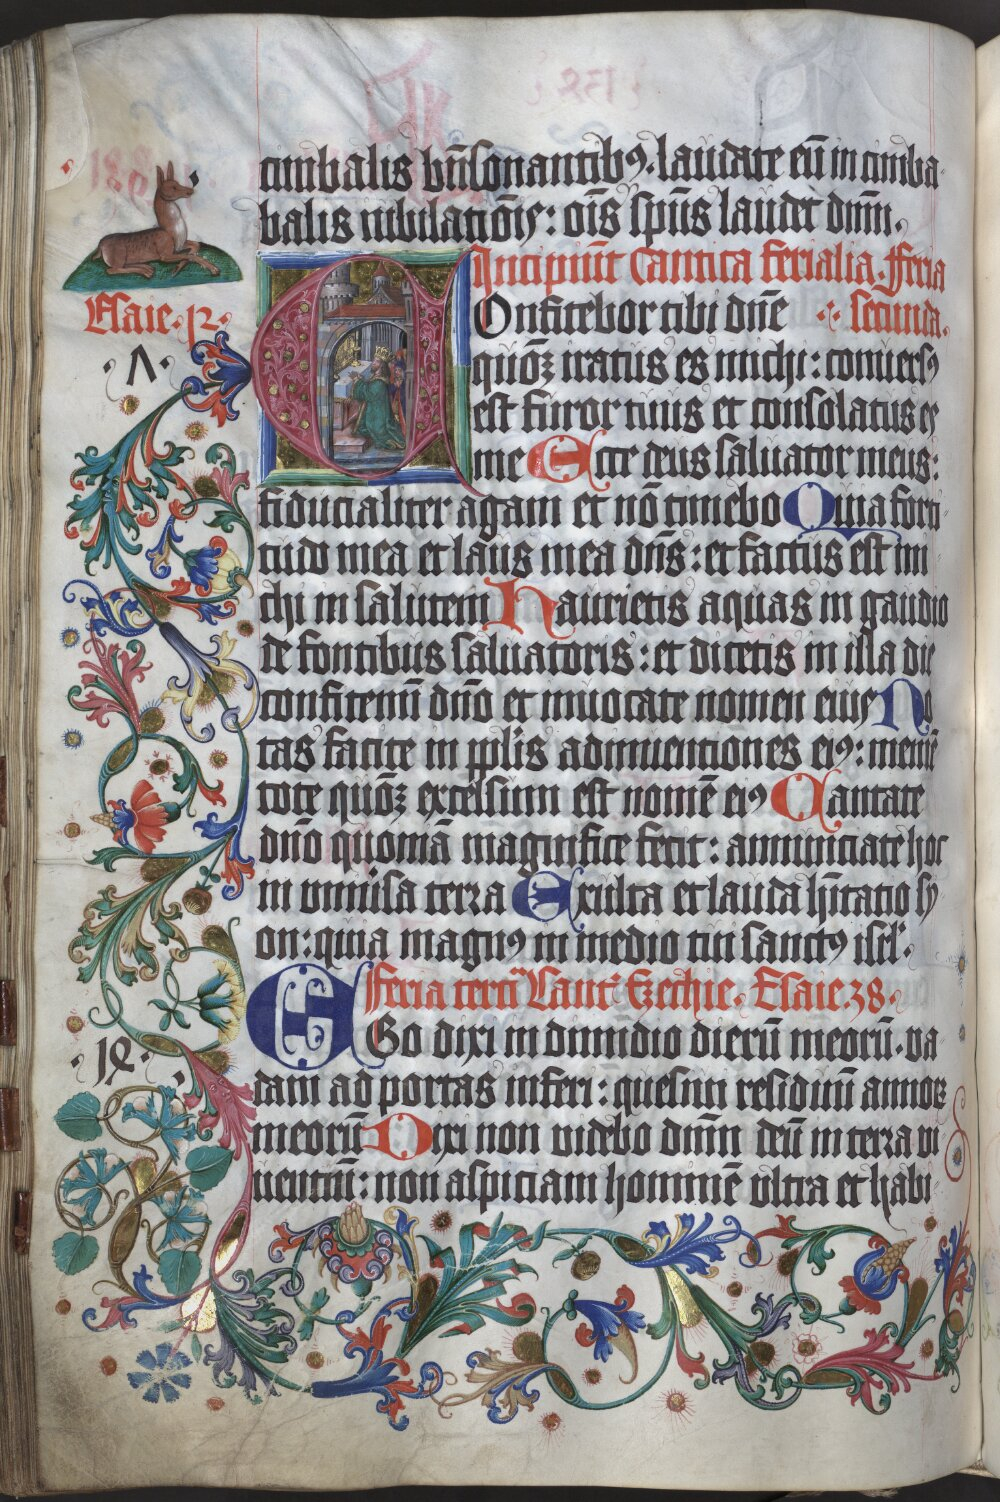 cimbalis bn̄sonantibꝯ. laudate eū in cimba
balis iubilatiōis: ois̄ spūs laudet dnm̄.
Incipiūt Cantica ferialia. Feria
Esaie. 12.
Onfitebor tibi dn̄e secunda.
.A.
quōꝫ iratus es michi: conuersꝯ
est furor tuus et consolatus es
me Ecce deus saluator meus:
fiducialiter agam et nō timebo Quia forti
tudo mea et laus mea dn̄s: et factus est mi
chi in salutem Haurietis aquas in gaudio
de fontibus saluatoris: et dicetis in illa die
confitemi̅ dn̄o et inuocate nomen eius No
tas facite in pp̄lis adinuentiones eiꝯ: memē
tote quōꝫ excelsum est nomē eiꝯ Cantate
dn̄o quoniā magnifice fecit: annunciate hoc
in uniuersa terra Exulta et lauda hītatio sy
on: quia magnꝯ in medio tui sanctꝯ isrl̄.
Feria terci̅ Cant Ezechie. Esaie 38.
EGo dixi in dimidio dierū meorū. va
dam ad portas inferi: quesiui residuū annoꝝ
meorū Dixi non videbo dnm̄ deū in terra vi
uentiū: non aspiciam hominē ultra et habi